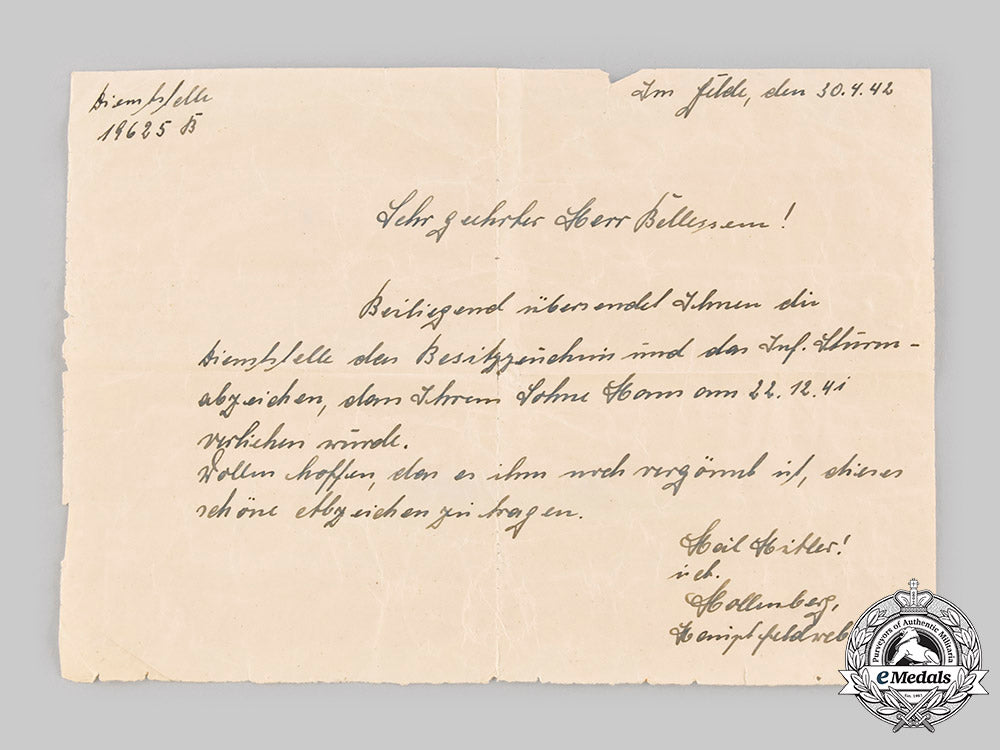 Dienststelle
19625 B
Im Felde, den 30.4.42
Sehr geehrter Herr Bellessem!
Beiliegend übersendet Ihnen die
Dienststelle das Besitzzeichnis und das Inf. Sturm-
abzeichen, das Ihrem Sohne Hans am 22.12.41
verliehen wurde.
Wollen hoffen, das es ihm noch vergönnt ist, dieses
schöne Abzeichen zu tragen.
Heil Hitler!
Hollenberg,
Hauptfeldweb
Purveyors of Authentic Militaria
eMedals